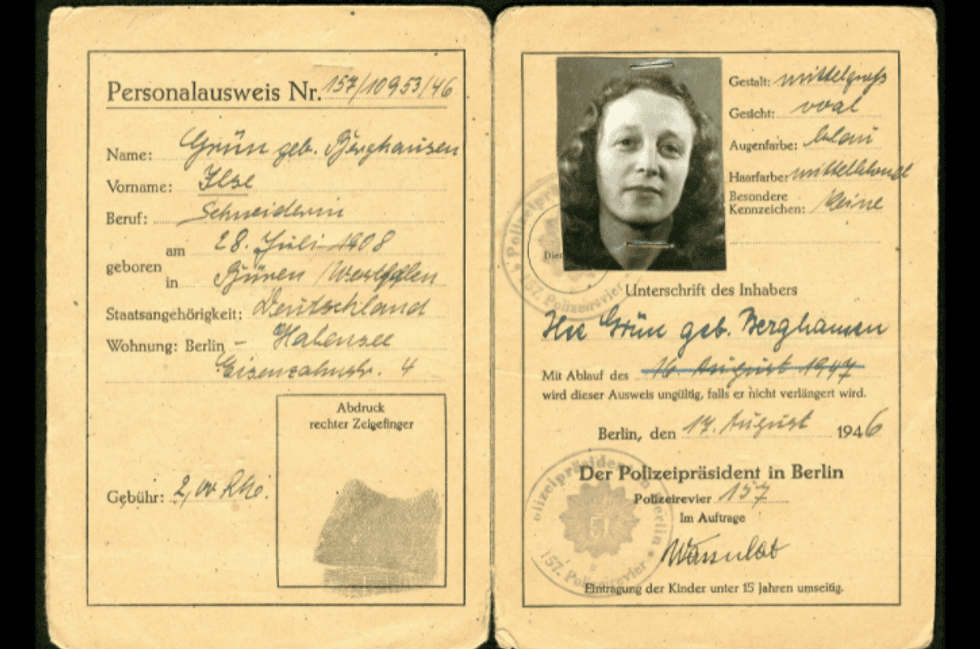 Personalausweis Nr. 157/10953/46
Name: Grün geb. Berghausen
Vorname: Ilse
Beruf: Schneiderin
geboren am 28. Juli 1908
in Büren Westfalen
Staatsangehörigkeit: Deutschland
Wohnung: Berlin - Halensee
Eisenzahnstr. 4
Abdruck
rechter Zeigefinger
Gebühr: 2,00 RM.
Gestalt: mittelgroß
Gesicht: oval
Augenfarbe: blau
Haarfarbe: mittelblond
Besondere
Kennzeichen: keine
Dien
Unterschrift des Inhabers
Ilse Grün geb. Berghausen
Mit Ablauf des 16. August 1947
wird dieser Ausweis ungültig, falls er nicht verlängert wird.
Berlin, den 17. August 1946
Der Polizeipräsident in Berlin
Polizeirevier 157
Im Auftrage
Eintragung der Kinder unter 15 Jahren umseitig.
olizeipräsident Berlin
157. Polizeirevier
51
157. Polizeirevier